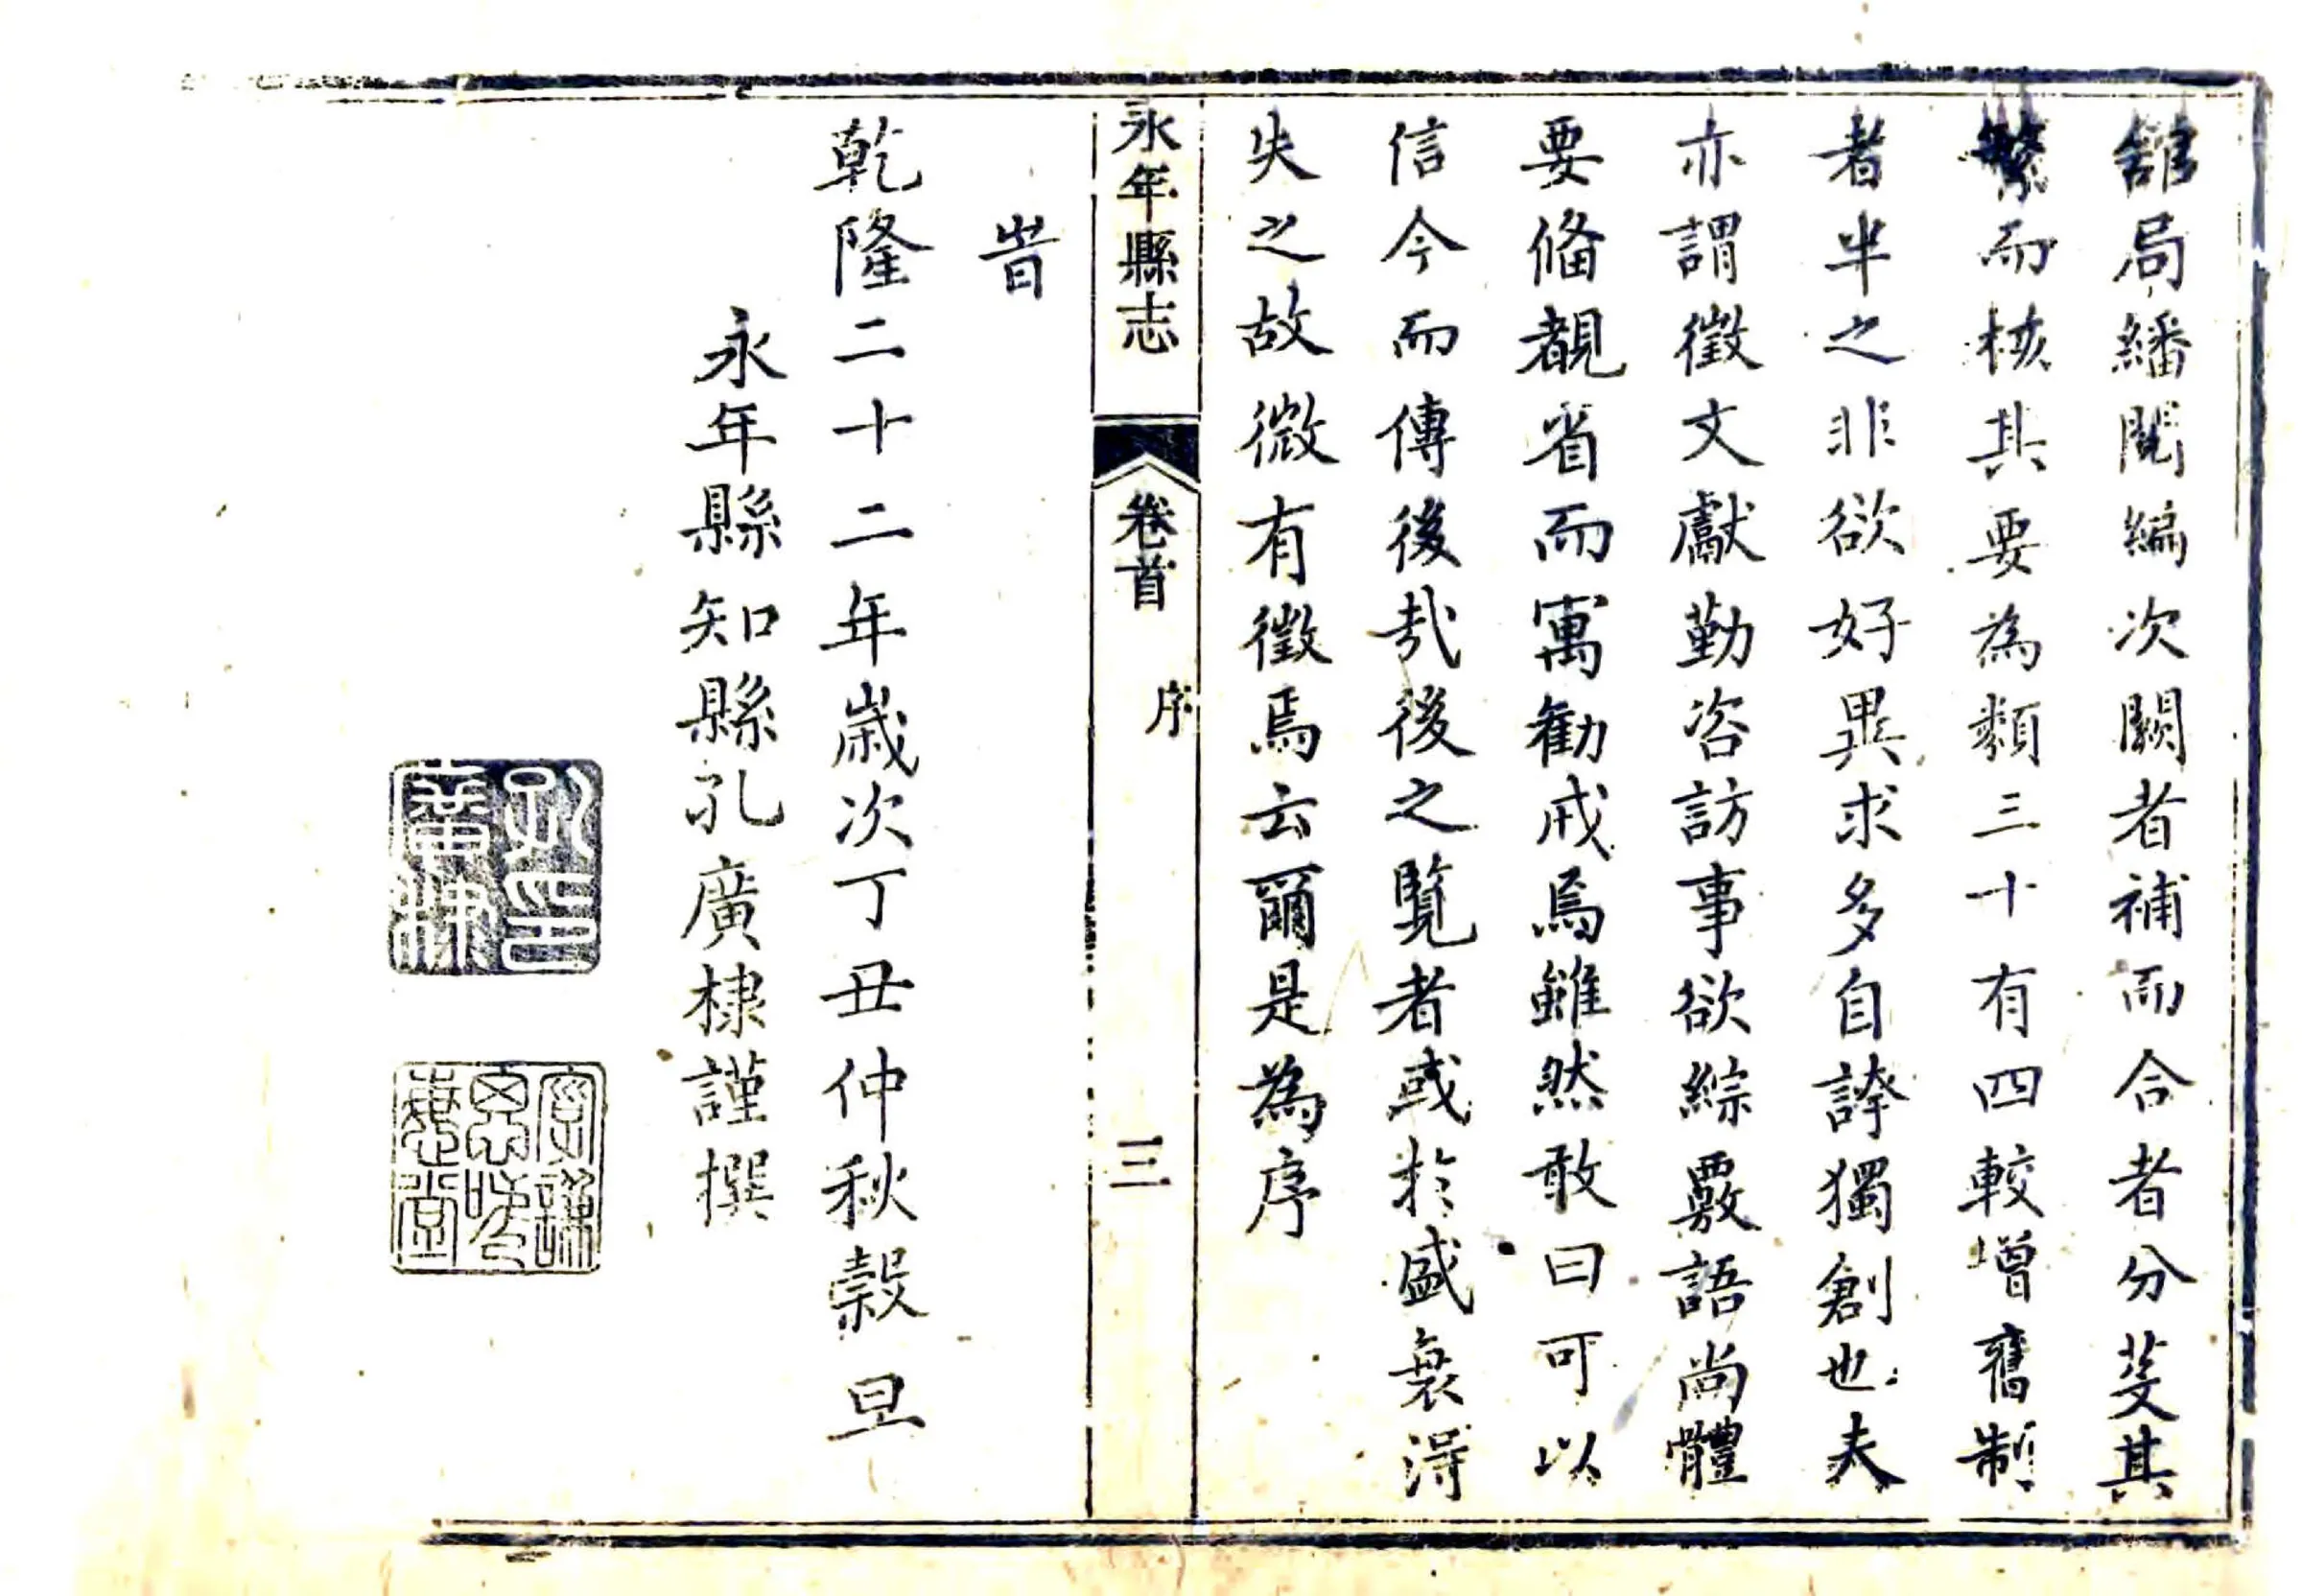 舘局繙閱編次闕者補而合者分芟其
繁而核其要為類三十有四較增舊制
者半之非欲好異求多自誇獨創也夫
亦謂徵文獻勤咨訪事欲綜覈語尚體
要俻覩省而寓勸戒焉雖然敢曰可以
信今而傳後哉後之覽者或於盛衰淂
失之故微有徵焉云爾是為序
永年縣志
卷首
序
三
旹
乾隆二十二年歲次丁丑仲秋穀旦
永年縣知縣孔廣棣謹撰
孔印
廣棣